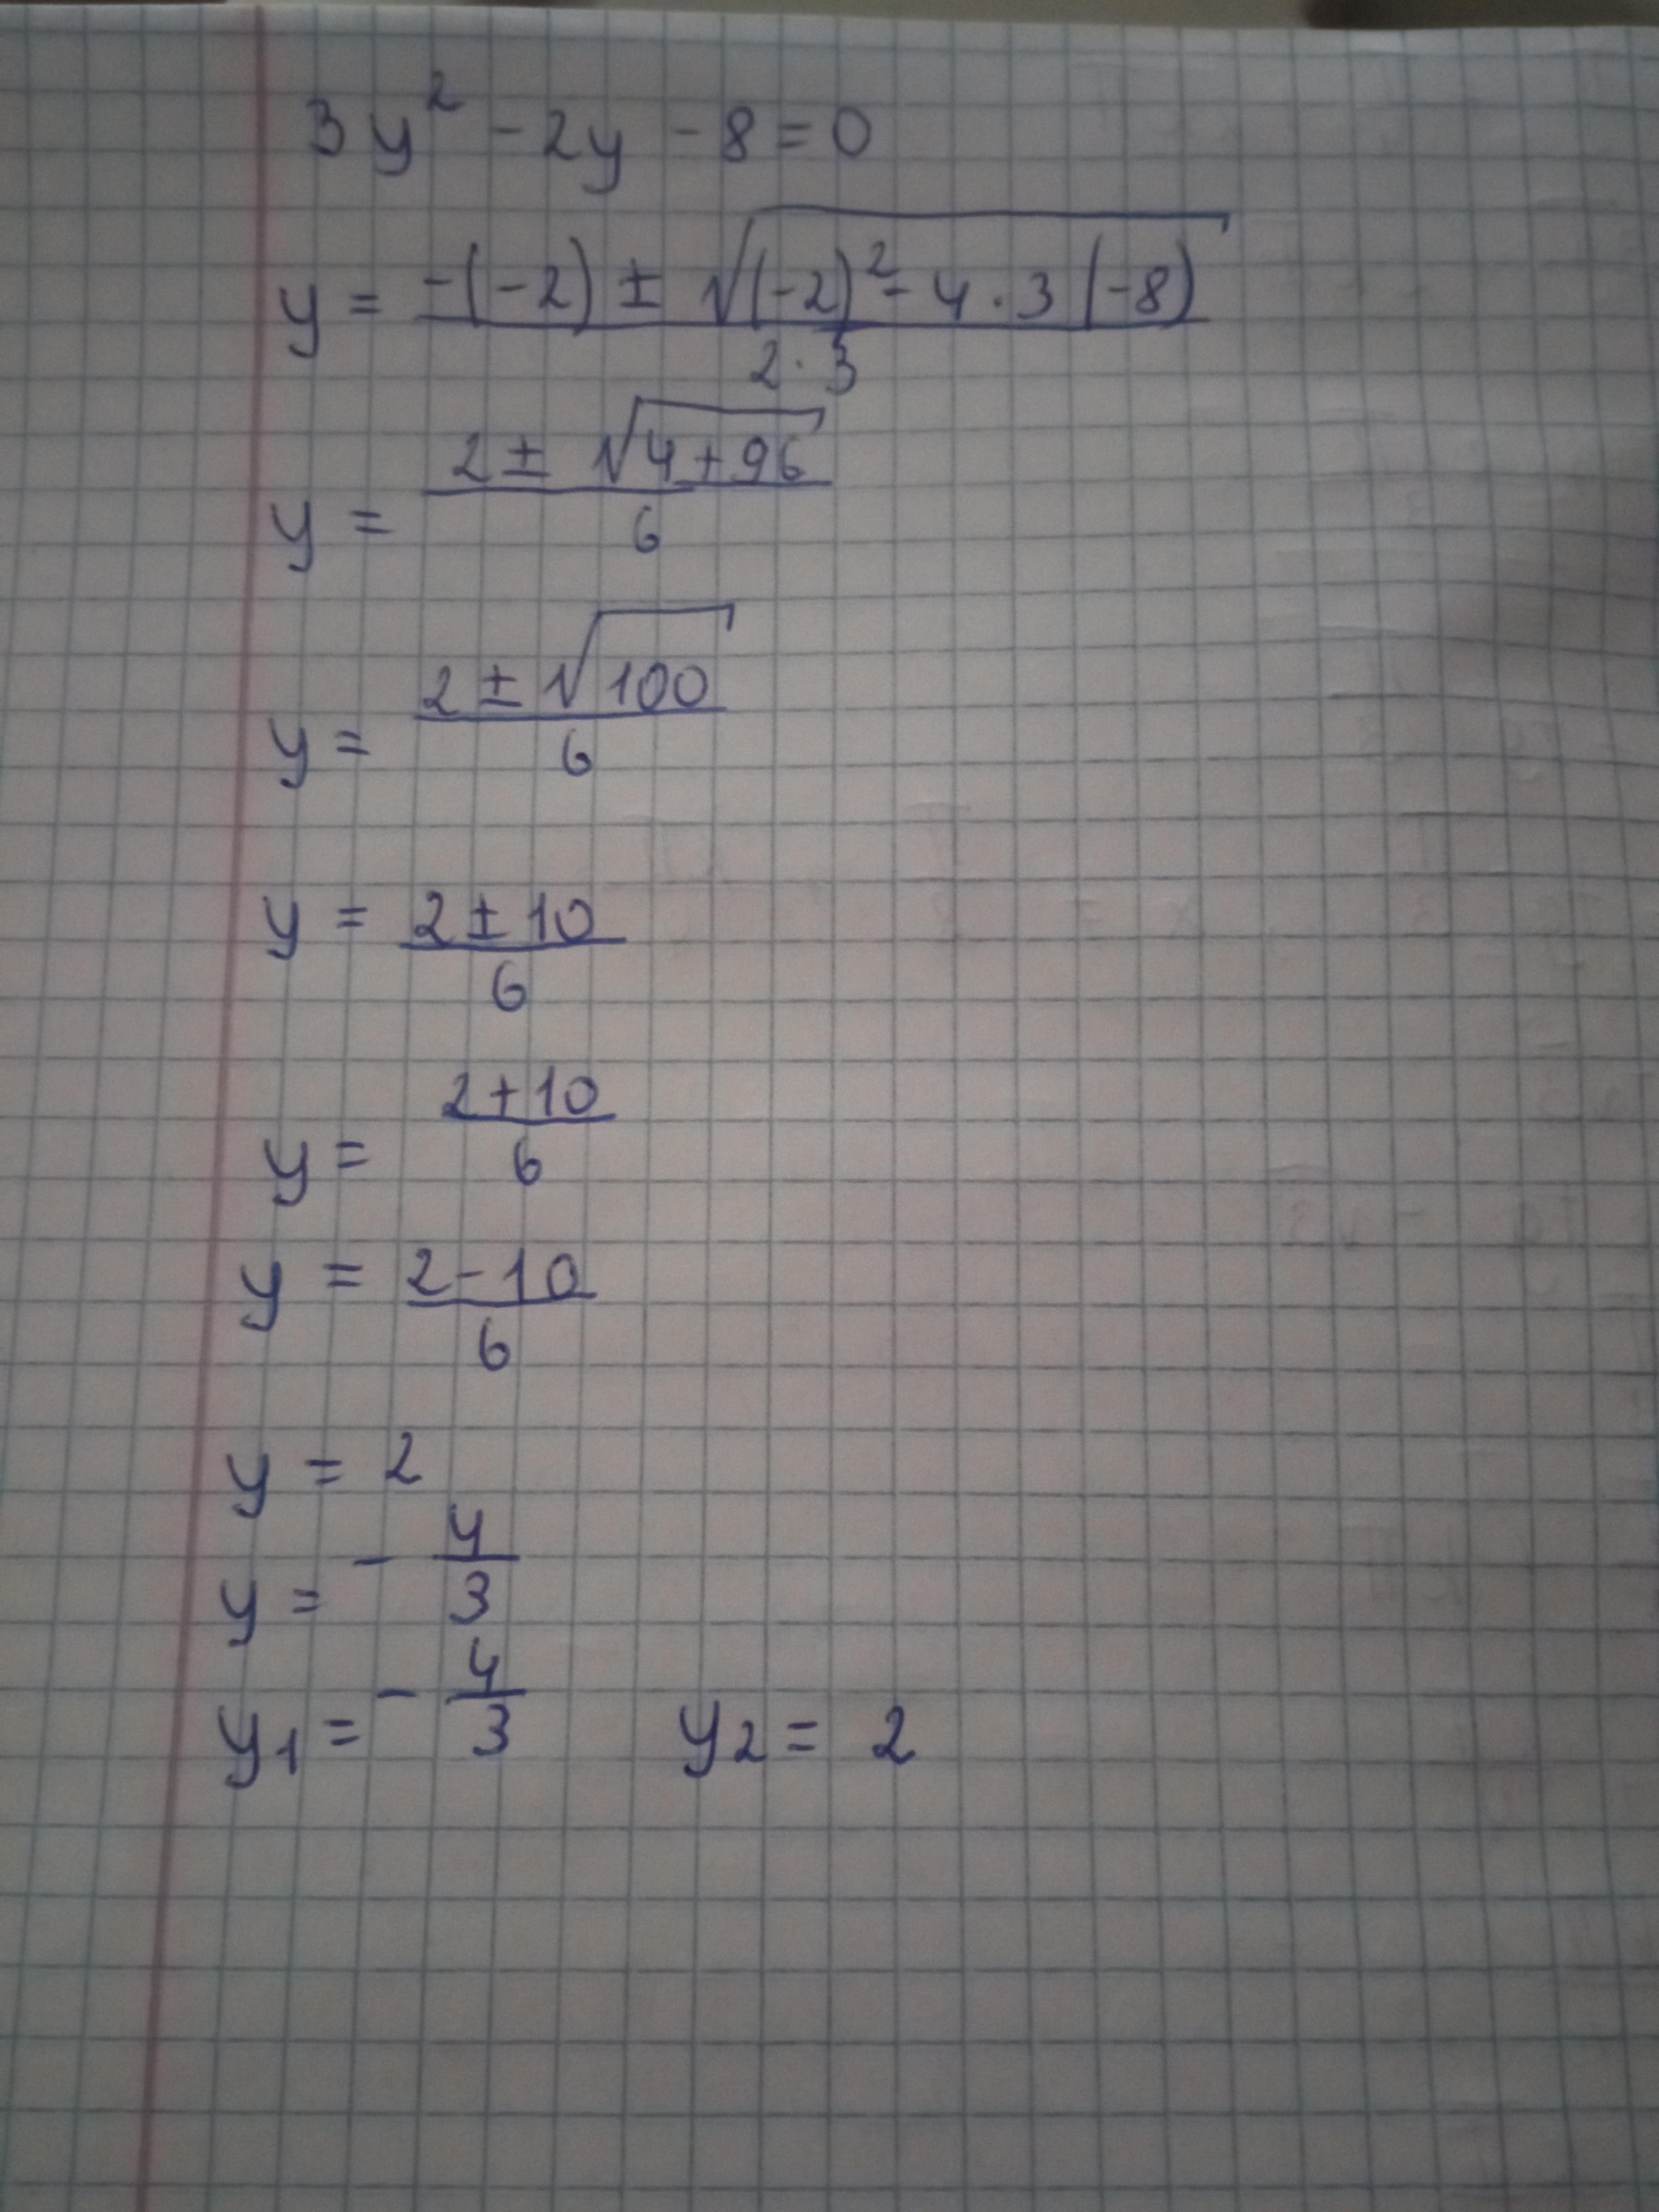 3y² - 2y - 8 = 0
y = (-(-2) ± √((-2)² - 4 · 3 (-8))) / (2 · 3)
y = (2 ± √(4 + 96)) / 6
y = (2 ± √100) / 6
y = (2 ± 10) / 6
y = (2 + 10) / 6
y = (2 - 10) / 6
y = 2
y = - 4/3
y₁ = - 4/3 y₂ = 2